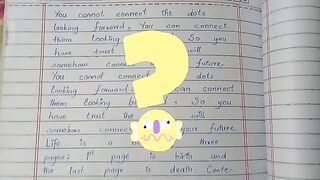 You cannot connect the dots
looking forward, You can connect
them looking So you
have trust will
somehow conne future.
You cannot dots
Looking forward connect
them looking b , So you
have trust the will
somehow connec your future.
Life is a b three
pages: 1st page is birth and
the last page is death. Cente-